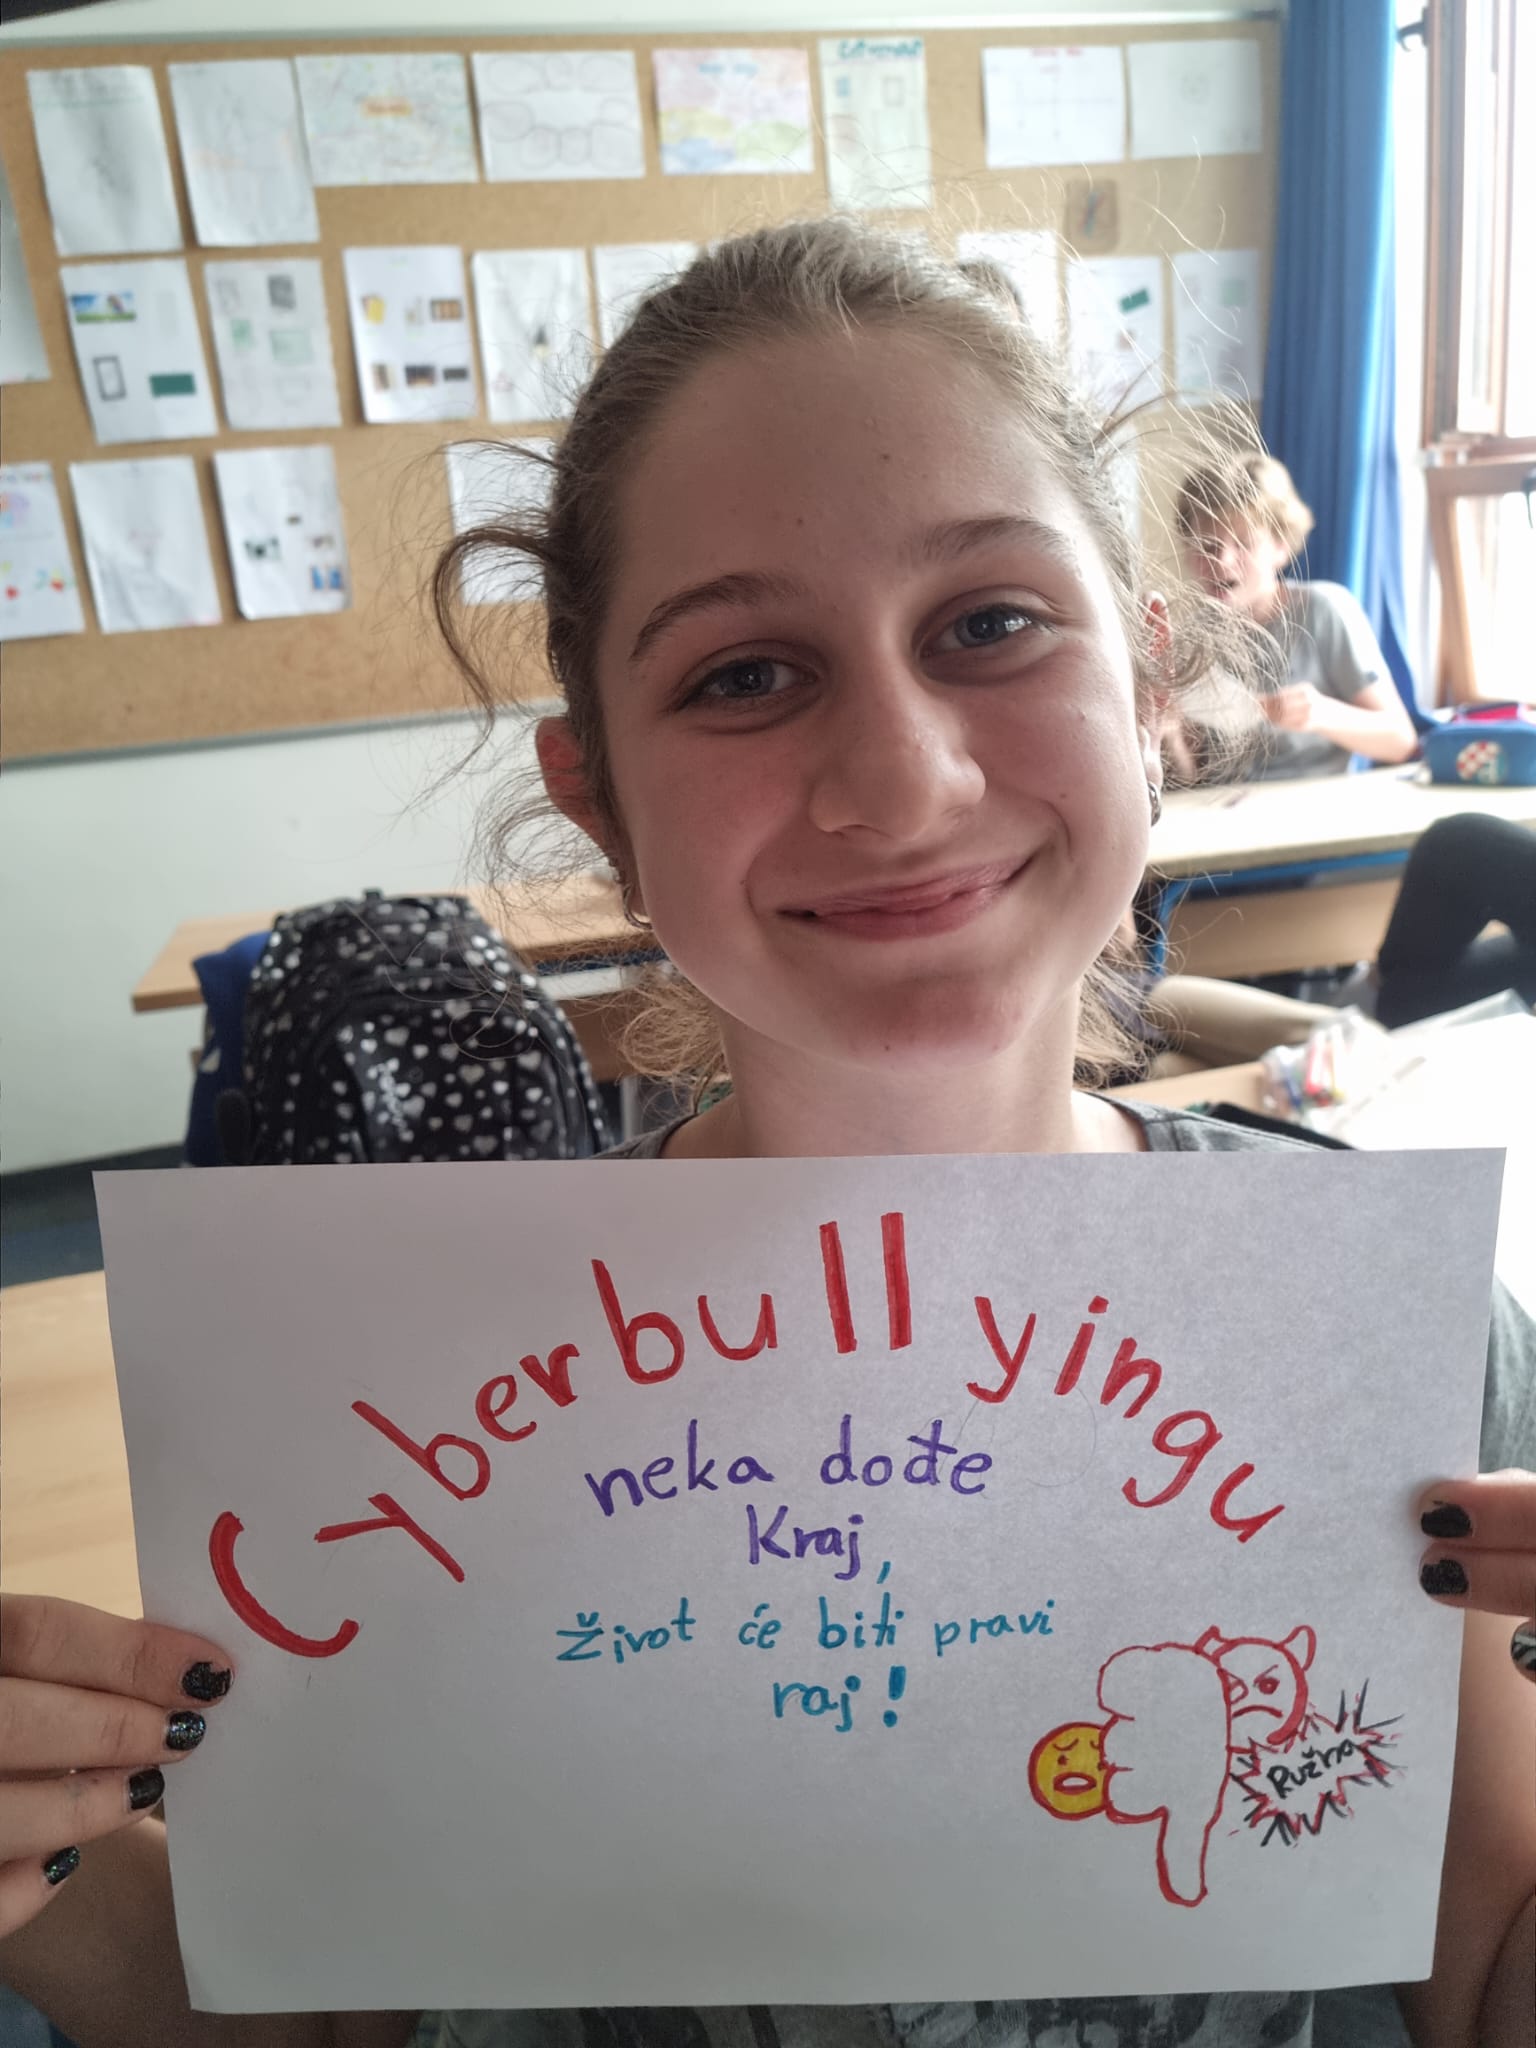 Cyberbullyingu
neka dođe
Kraj,
život će biti pravi
raj!
Ružna